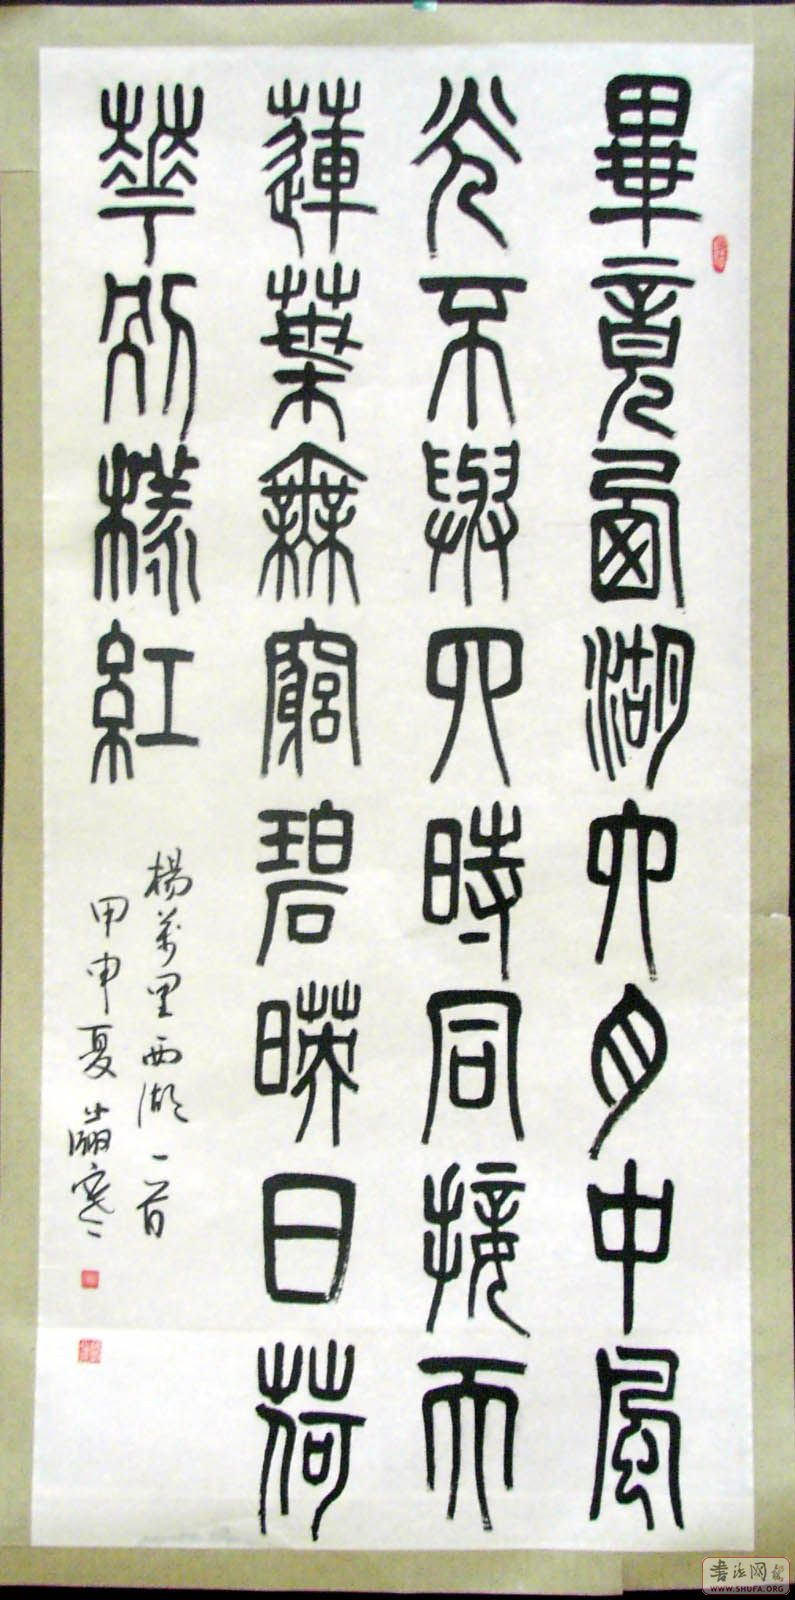 畢竟西湖六月中風
光不與四時同接天
蓮葉無窮碧暎日荷
華別樣紅
楊萬里西湖一首
甲申夏
书法网
WWW.SHUFA.ORG